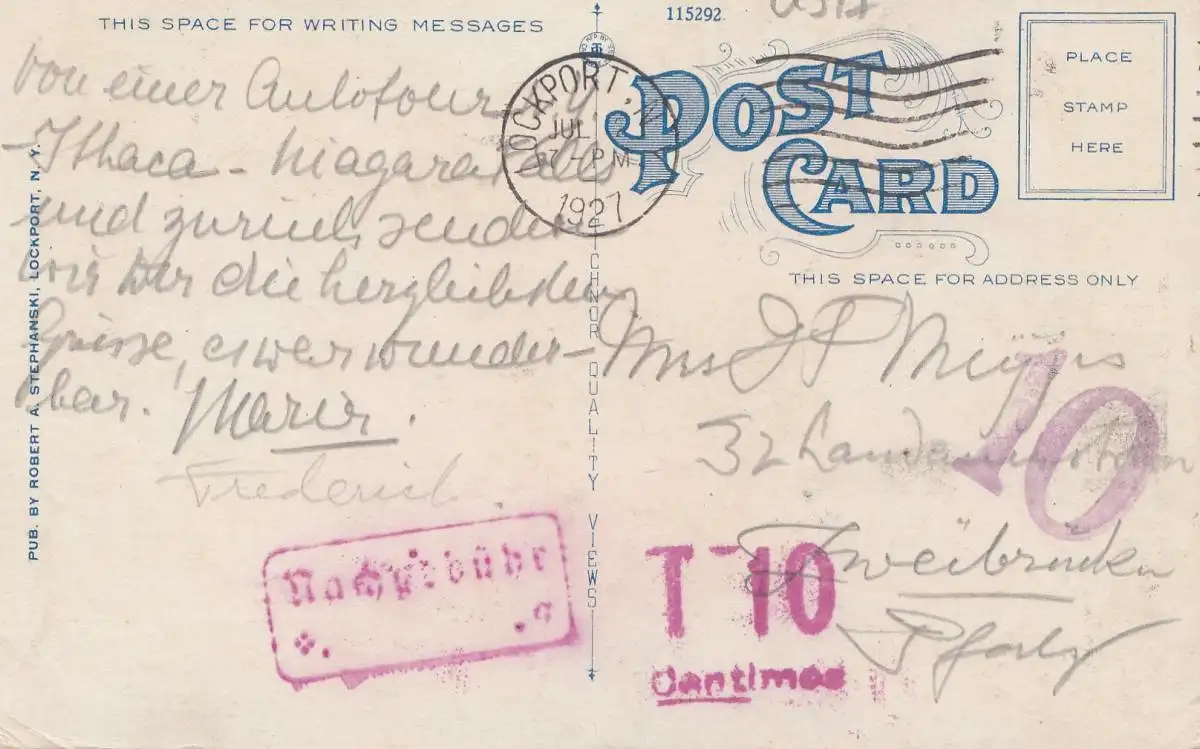 THIS SPACE FOR WRITING MESSAGES
115292.
USA
von einer Autotour
Ithaca - Niagarafalls
und zurück senden
wir Dir die herzlichsten
Grüsse, es wer wunder-
bar. Marie.
Frederick.
PUB. BY ROBERT A. STEPHANSKI, LOCKPORT, N. Y.
LOCKPORT, N.Y.
JUL
7 - PM
1927
POST CARD
PLACE
STAMP
HERE
THIS SPACE FOR ADDRESS ONLY
QUALITY VIEWS
Mrs J P Meyers
32 Landauerstrasse
Zweibrücken
Pfalz
10
Nachgebühr
T 10
Centimes